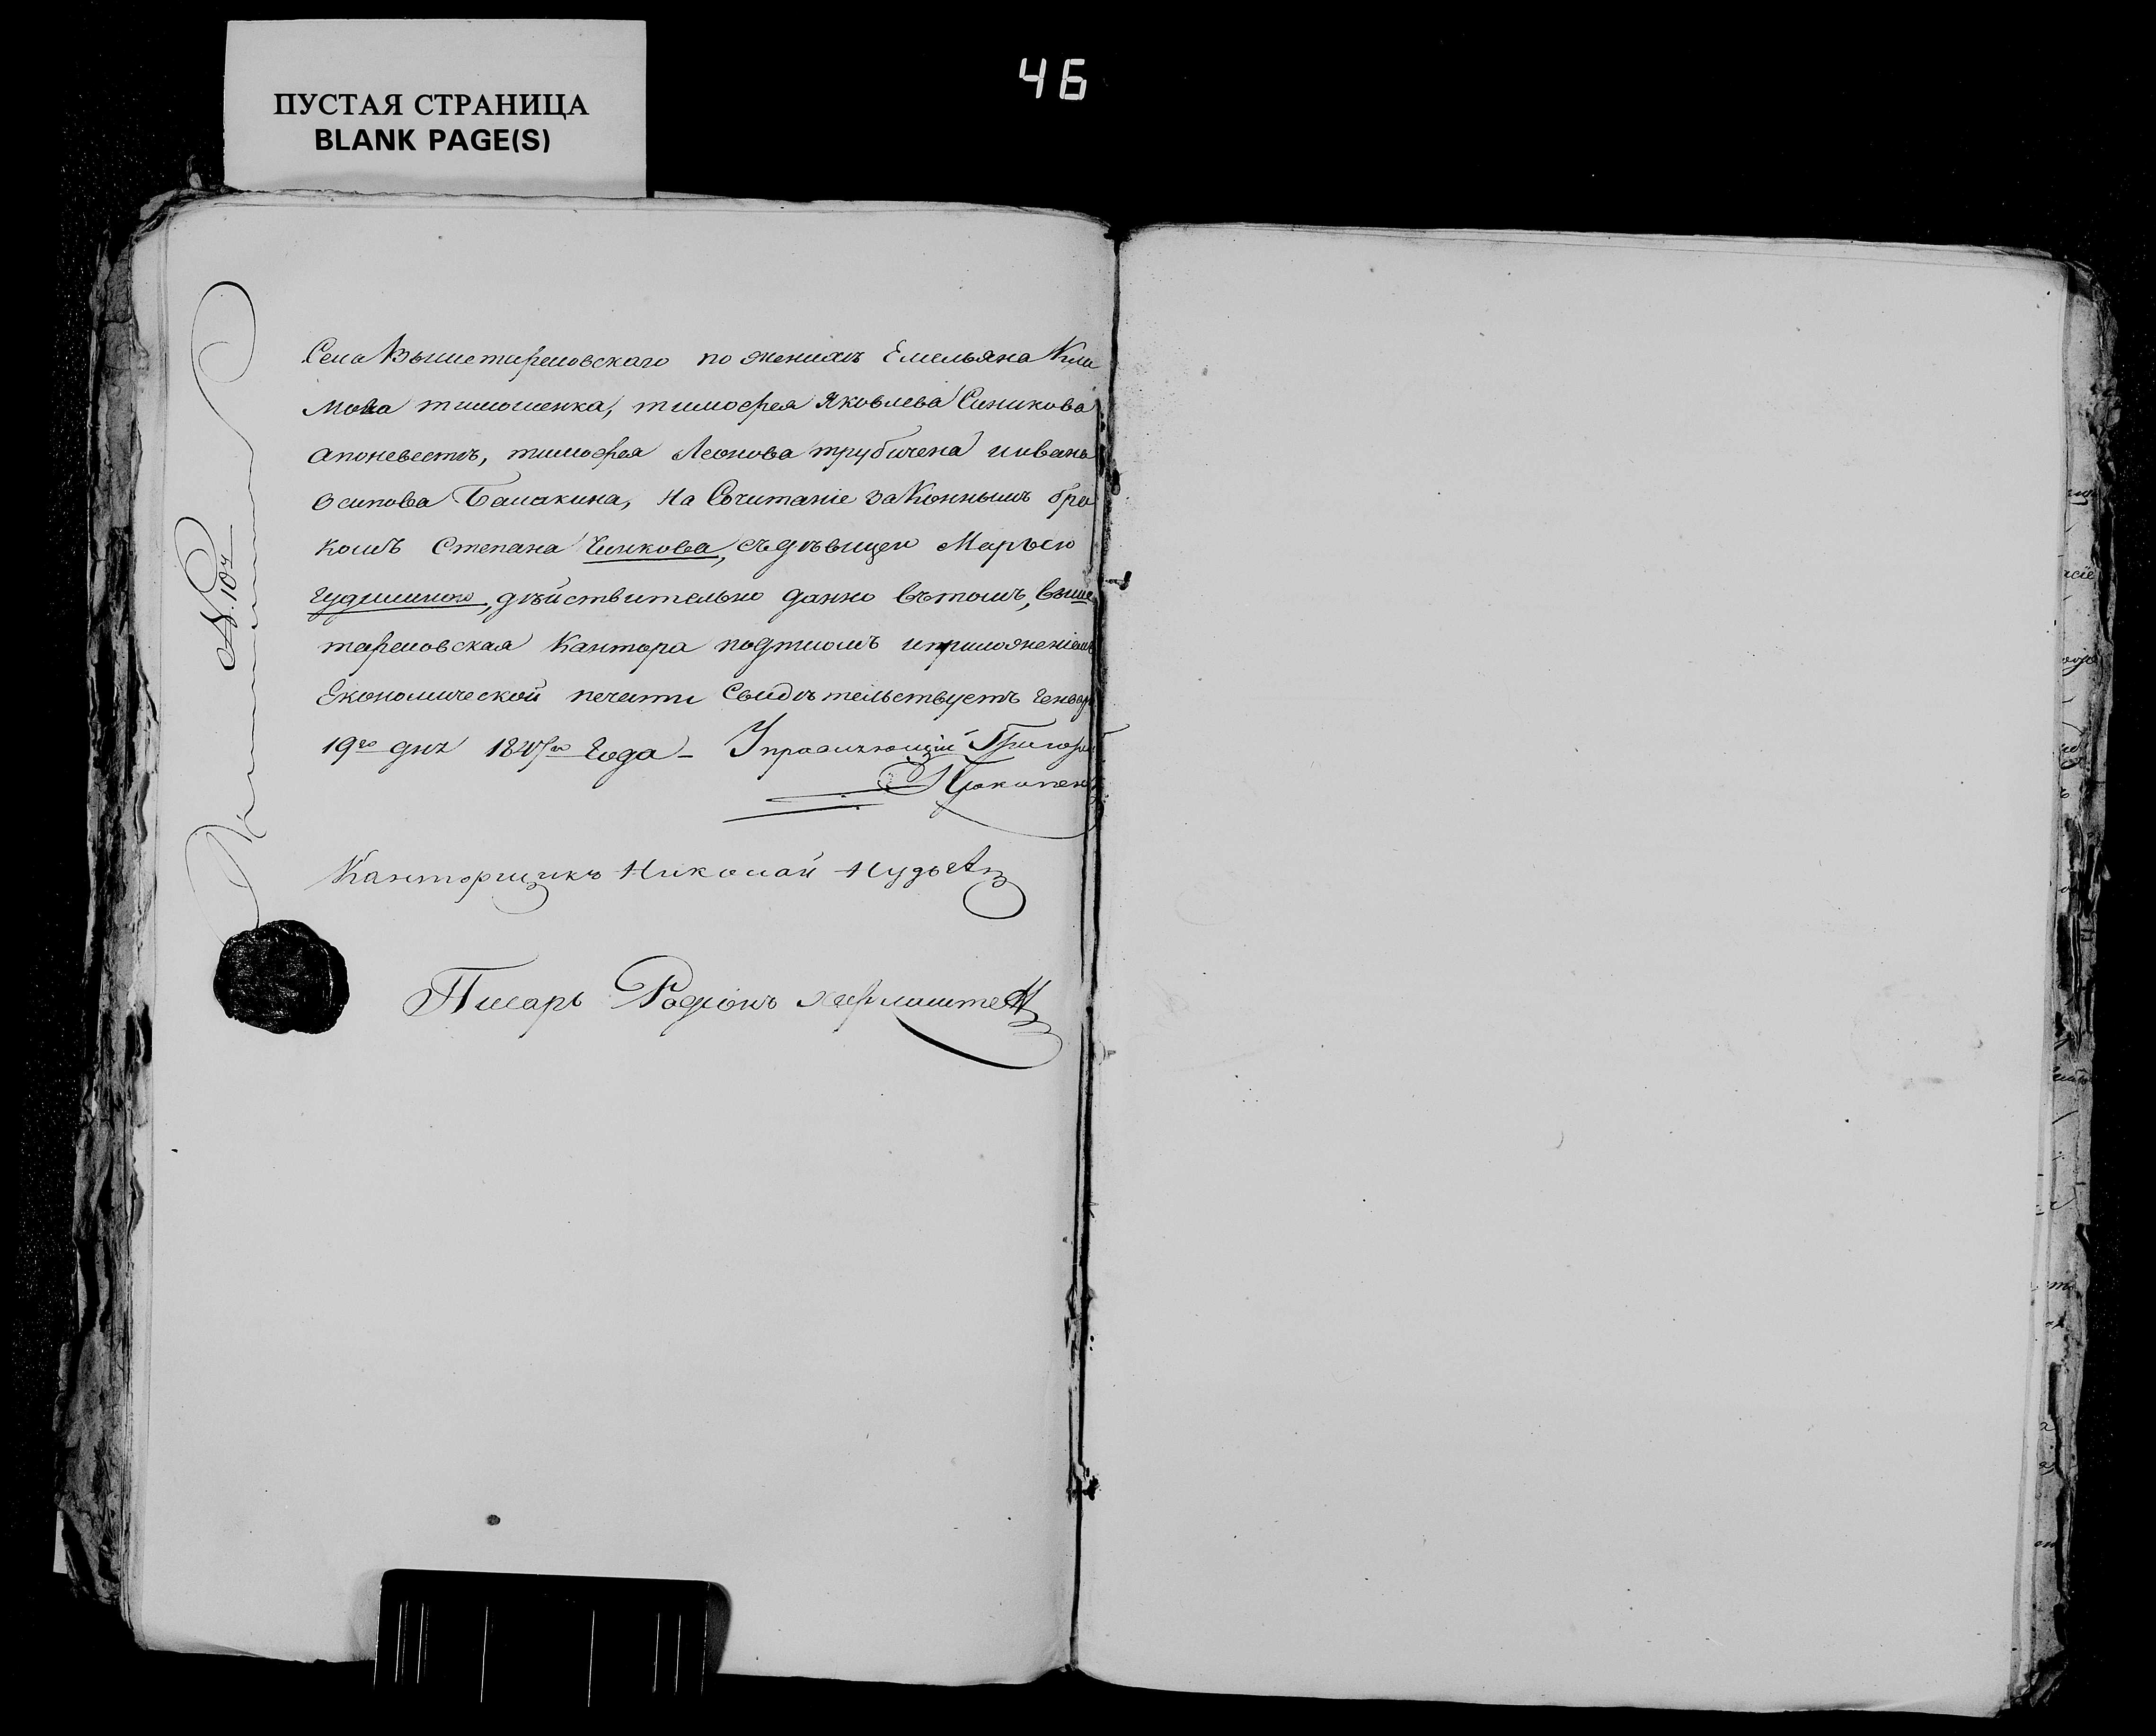 46
ПУСТАЯ СТРАНИЦА
BLANK PAGE(S)
Села Вышетарасовскаго по женихѣ Емельяна Кли
мова тимошенка, тимофея Яковлева Синикова
апоневестѣ, тимофея Леонова трубичена ииванъ
Осипова Балакина, На Сочитаніе Законнымъ бра
комъ Степана Чинкова, съдѣвицею Марьею
Гудилиною, дѣйствительно данно вътомъ, Выше
тарасовская Кантора подписомъ иприложеніемъ
Економической печати Свидѣтельствуетъ Генваря
19го дня 1847го Года - Управляющій Григорій
Прокопен
Канторщикъ Николай Нудьга
Писарь Родіонъ
№ 104